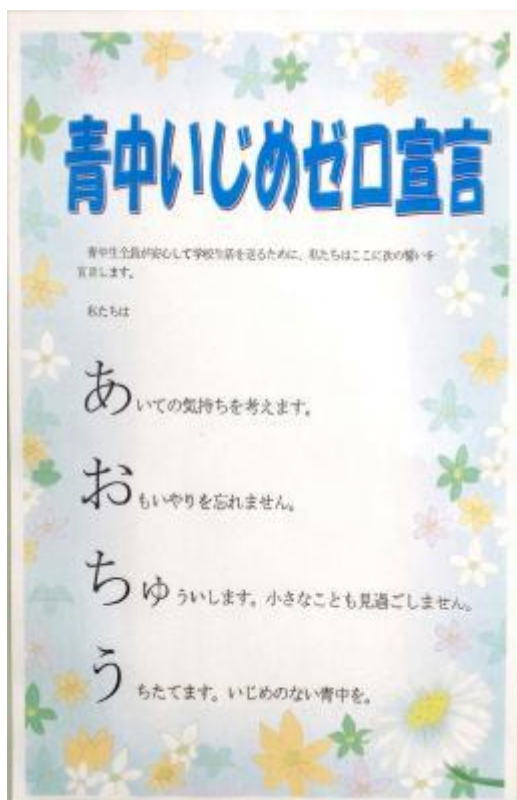 青中いじめゼロ宣言
青中生全員が安心して学校生活を送るために、私たちはここに次の誓いを
宣言します。
私たちは
あいての気持ちを考えます。
おもいやりを忘れません。
ちゅういします。小さなことも見過ごしません。
うちたてます。いじめのない青中を。